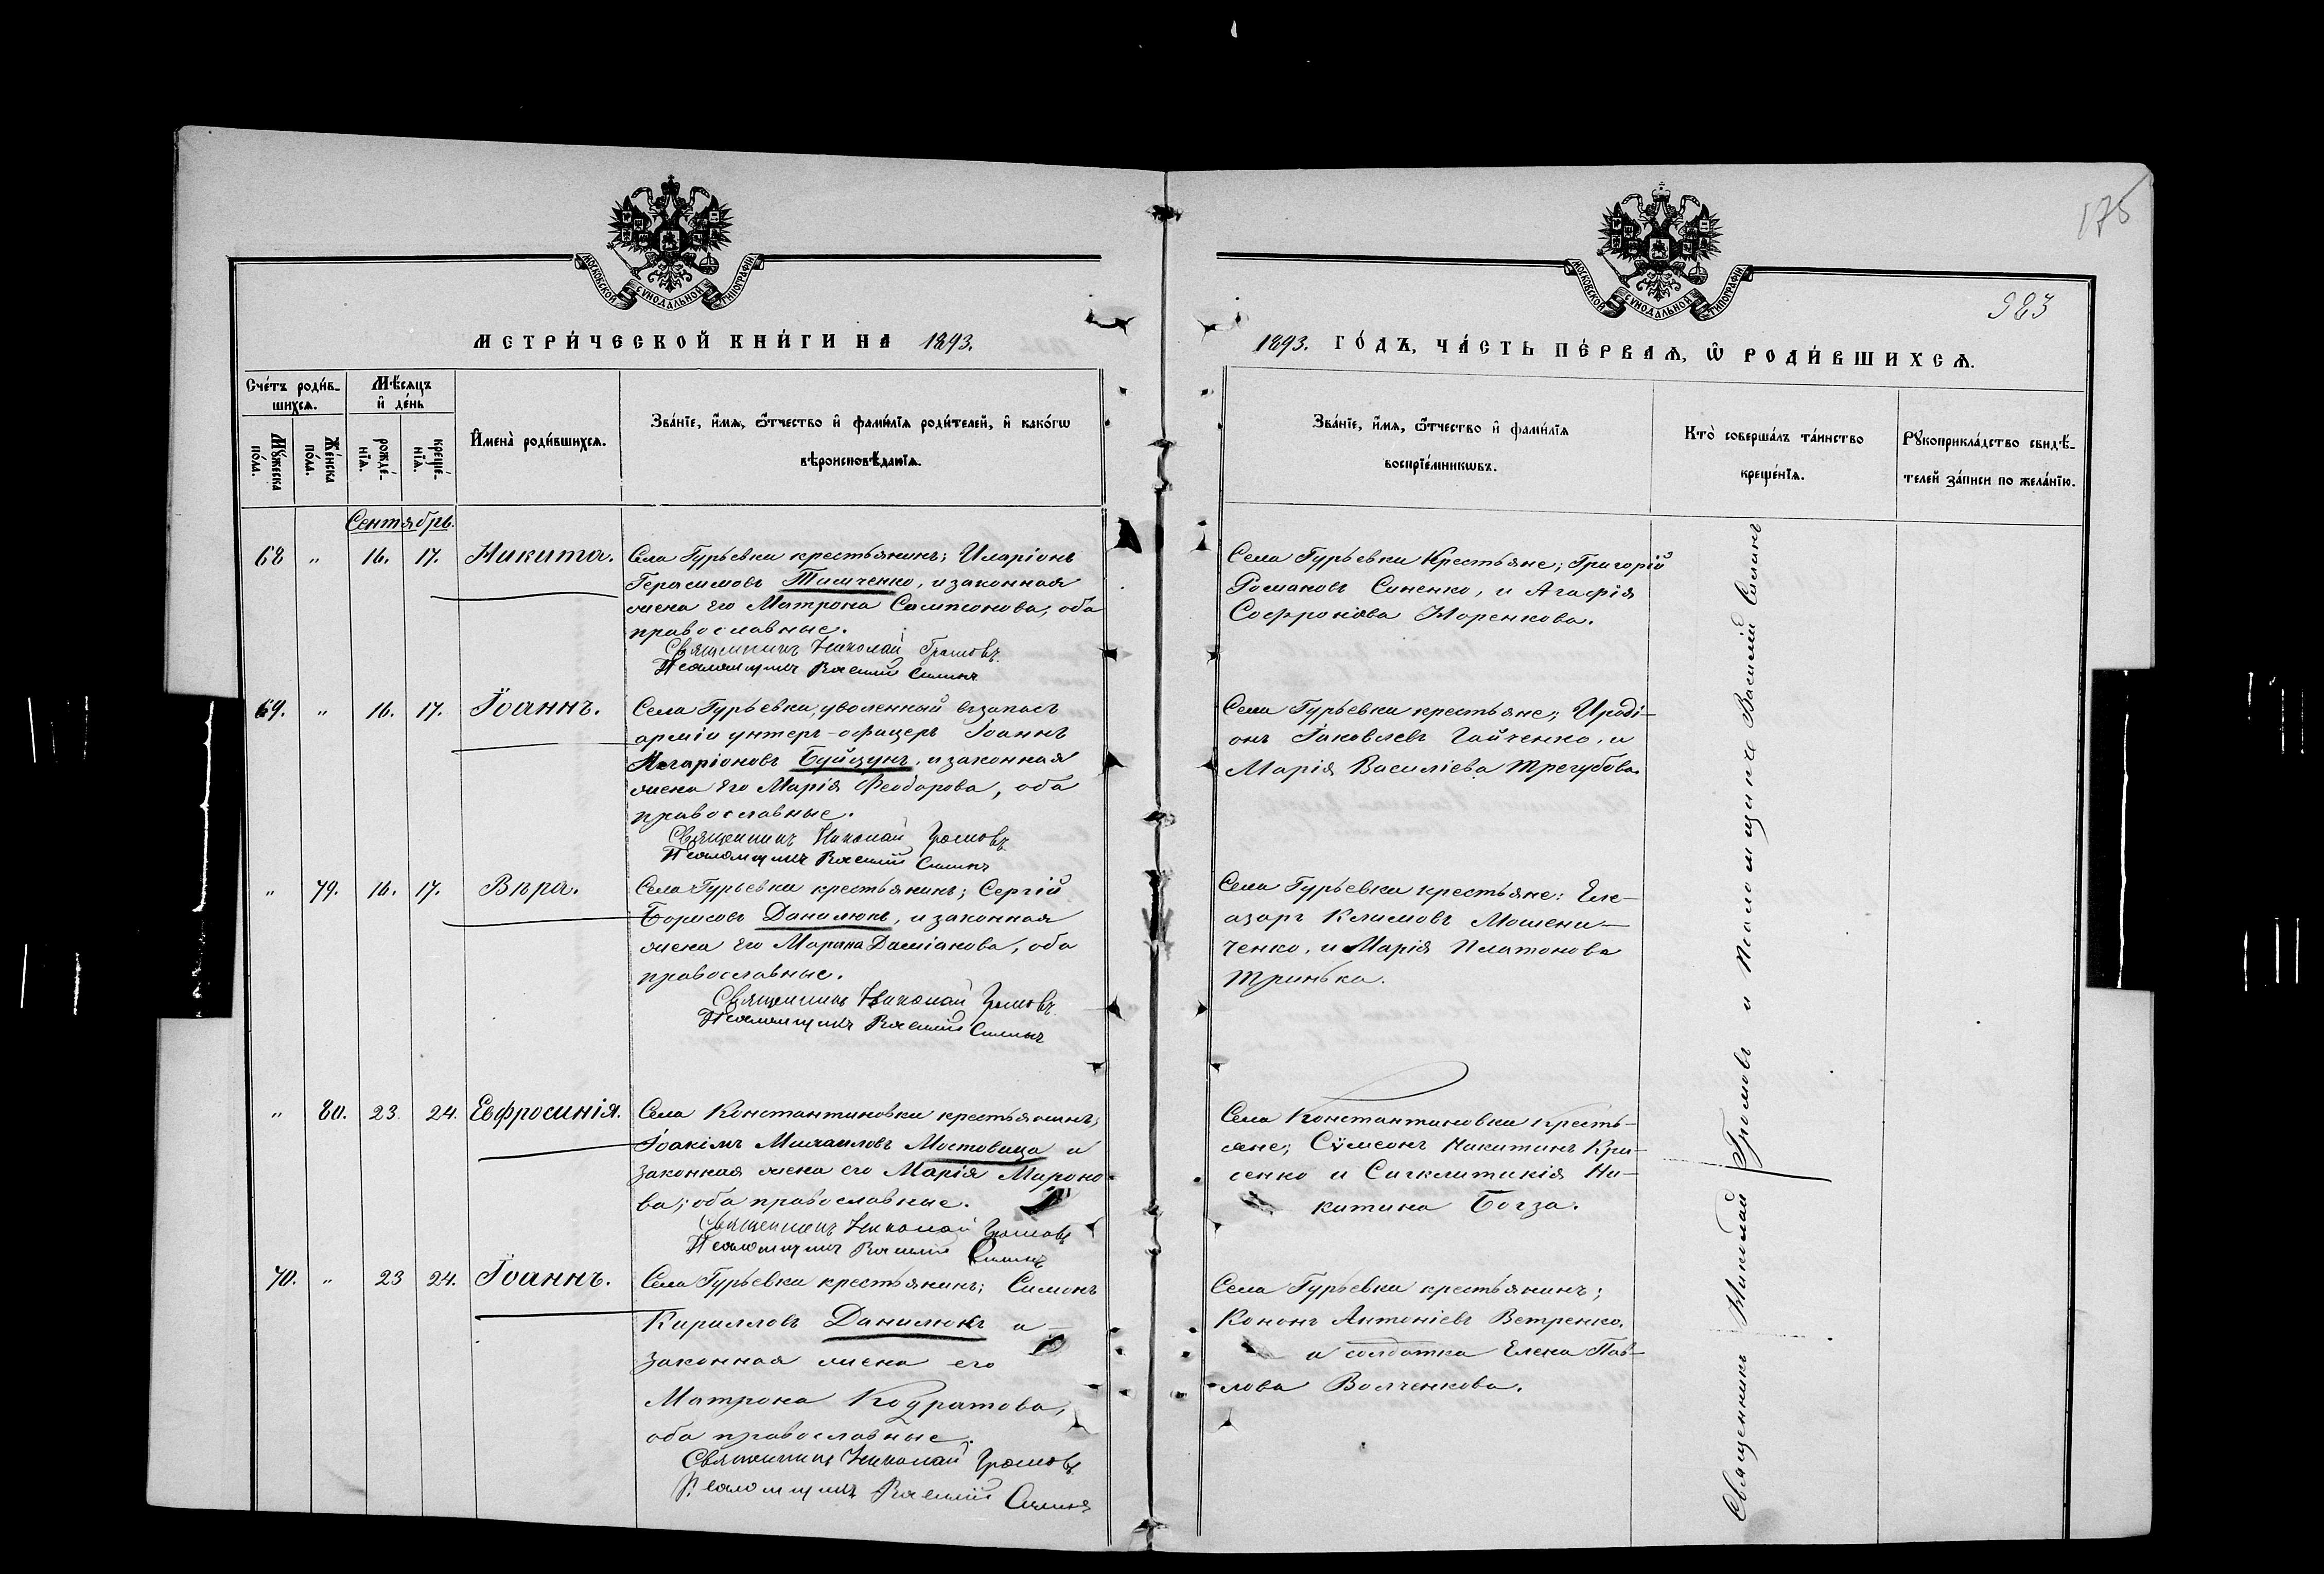 175
983
МОСКОВСКОЙ СѴНОДАЛЬНОЙ ТИПОГРАФІИ
МЕТРИ́ЧЕСКОЙ КНИ́ГИ НА 1893.
Сче́тъ роди́в-
шихсѧ.
Мѣ́сяцъ
и҆ де́нь
Мꙋ́жеска
по́ла.
Же́нска
по́ла.
рожде́-
нїѧ.
креще́-
нїѧ.
И҆мена̀ роди́вшихсѧ.
Зва́нїе, и҆́мѧ, ѻ҆́тчество и҆ фами́лїѧ роди́телей, и҆ како́гѡ
вѣроисповѣ́данїѧ.
Сентябрь.
68 „ 16. 17. Никита.
Села Гурьевки крестьянинъ; Иларіонъ
Герасимовъ Тимченко, и законная
жена его Матрона Сампсонова, оба
православные.
Священникъ Николай Громовъ
Псаломщикъ Василій Силинъ
69. „ 16. 17. Іоаннъ.
Села Гурьевки, уволенный въ запасъ
арміи унтеръ-офицеръ Іоаннъ
Буйцунъ, и законная
жена его Марія Феодорова, оба
православные.
Священникъ Николай Громовъ
Псаломщикъ Василій Силинъ
„ 79. 16. 17. Вѣра.
Села Гурьевки крестьянинъ; Сергій
Борисовъ Данилюкъ, и законная
жена его Марина Даміанова, оба
православные.
Священникъ Николай Громовъ
Псаломщикъ Василій Силинъ
„ 80. 23. 24. Евфросинія.
Села Константиновки крестьянинъ;
Іоакимъ Михаиловъ Мостовица и
законная жена его Марія Мироно-
ва; оба православные.
Священникъ Николай Громовъ
Псаломщикъ Василій Силинъ
70. „ 23 24. Іоаннъ.
Села Гурьевки крестьянинъ; Симонъ
Кирилловъ Данилюкъ и
законная жена его
Матрона Кодратова,
оба православные.
Священникъ Николай Громовъ
Псаломщикъ Василій Силинъ
МОСКОВСКОЙ СѴНОДАЛЬНОЙ ТИПОГРАФІИ
1893. ГО́ДЪ, ЧА́СТЬ ПЕ́РВАѦ, Ѽ РОДИ́ВШИХСѦ.
Зва́нїе, и҆́мѧ, ѻ҆́тчество и҆ фами́лїѧ
воспрїе́мникѡвъ.
Кто̀ соверша́лъ та́инство
креще́нїѧ.
Рꙋкоприкла́дство свидѣ́-
телей за́писи по жела́нїю.
Села Гурьевки Крестьяне; Григорій
Романовъ Синенко, и Агафія
Софронова Норенкова.
Села Гурьевки крестьяне; Ироді-
онъ Іаковлевъ Гайченко, и
Марія Василіева Трегубова
Села Гурьевки крестьяне: Еле-
азаръ Климовъ Мошени-
ченко, и Марія Платонова
Тринька.
Села Константиновки кресть-
яне; Сѵмеонъ Никитинъ Кри-
сенко и Сигклитикія Ни-
китина Богза.
Села Гурьевки крестьянинъ;
Кононъ Антоніевъ Ветренко,
и солдатка Елена Пав-
лова Волченкова.
Священникъ Николай Громовъ и Псаломщикъ Василій Силинъ